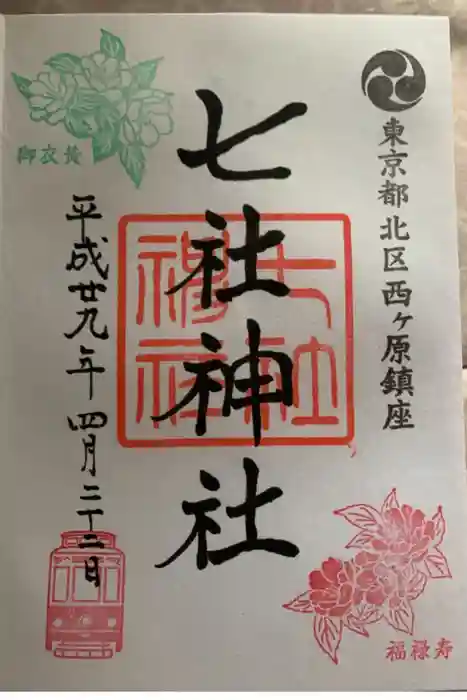 東京都北区西ヶ原鎮座
七社神社
七社神社
平成廿九年 四月二十二日
御衣黄
福禄寿